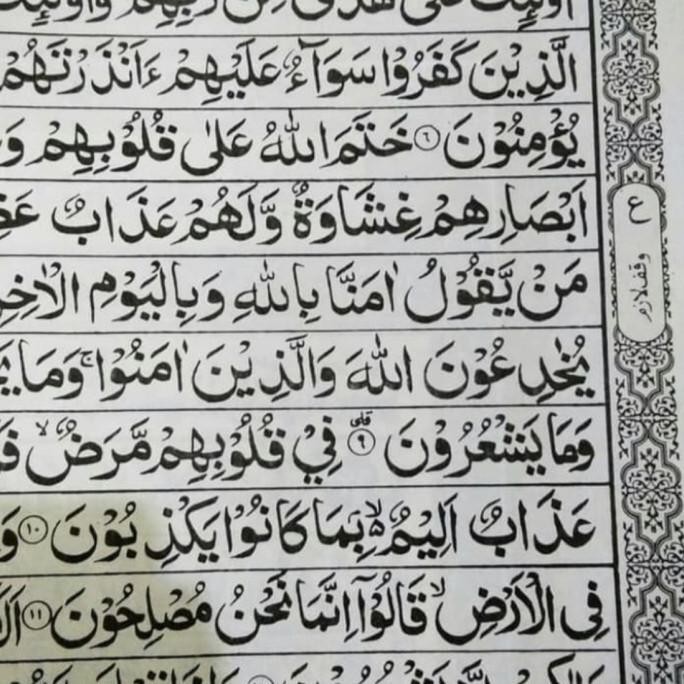 الَّذِيْنَ كَفَرُوْا سَوَآءٌ عَلَيْهِمْ ءَاَنْذَرْتَهُمْ
يُؤْمِنُوْنَ ٦ خَتَمَ اللّٰهُ عَلٰى قُلُوْبِهِمْ وَ
اَبْصَارِهِمْ غِشَاوَةٌ وَّلَهُمْ عَذَابٌ
مَنْ يَّقُوْلُ اٰمَنَّا بِاللّٰهِ وَبِالْيَوْمِ الْاٰخِرِ
يُخٰدِعُوْنَ اللّٰهَ وَالَّذِيْنَ اٰمَنُوْا ۚ وَمَا
وَمَا يَشْعُرُوْنَ ٩ فِيْ قُلُوْبِهِمْ مَّرَضٌ ۙ
عَذَابٌ اَلِيْمٌ ۙ۬ بِمَا كَانُوْا يَكْذِبُوْنَ ١٠ وَ
فِى الْاَرْضِ ۙ قَالُوْٓا اِنَّمَا نَحْنُ مُصْلِحُوْنَ ١١
ع
وقف لازم